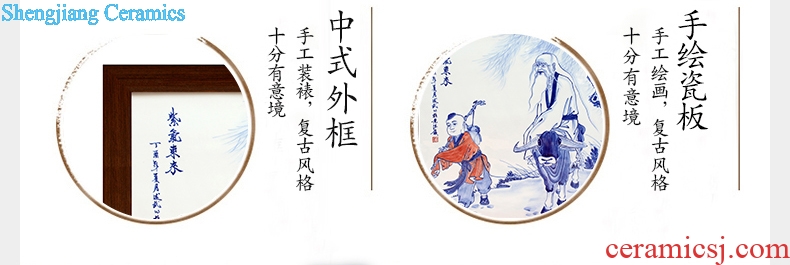 Shengjiang Ceramics
中式外框
手工装裱，复古风格
十分有意境
紫氣東來
手绘瓷板
手工绘画，复古风格
十分有意境
ceramicsj.com